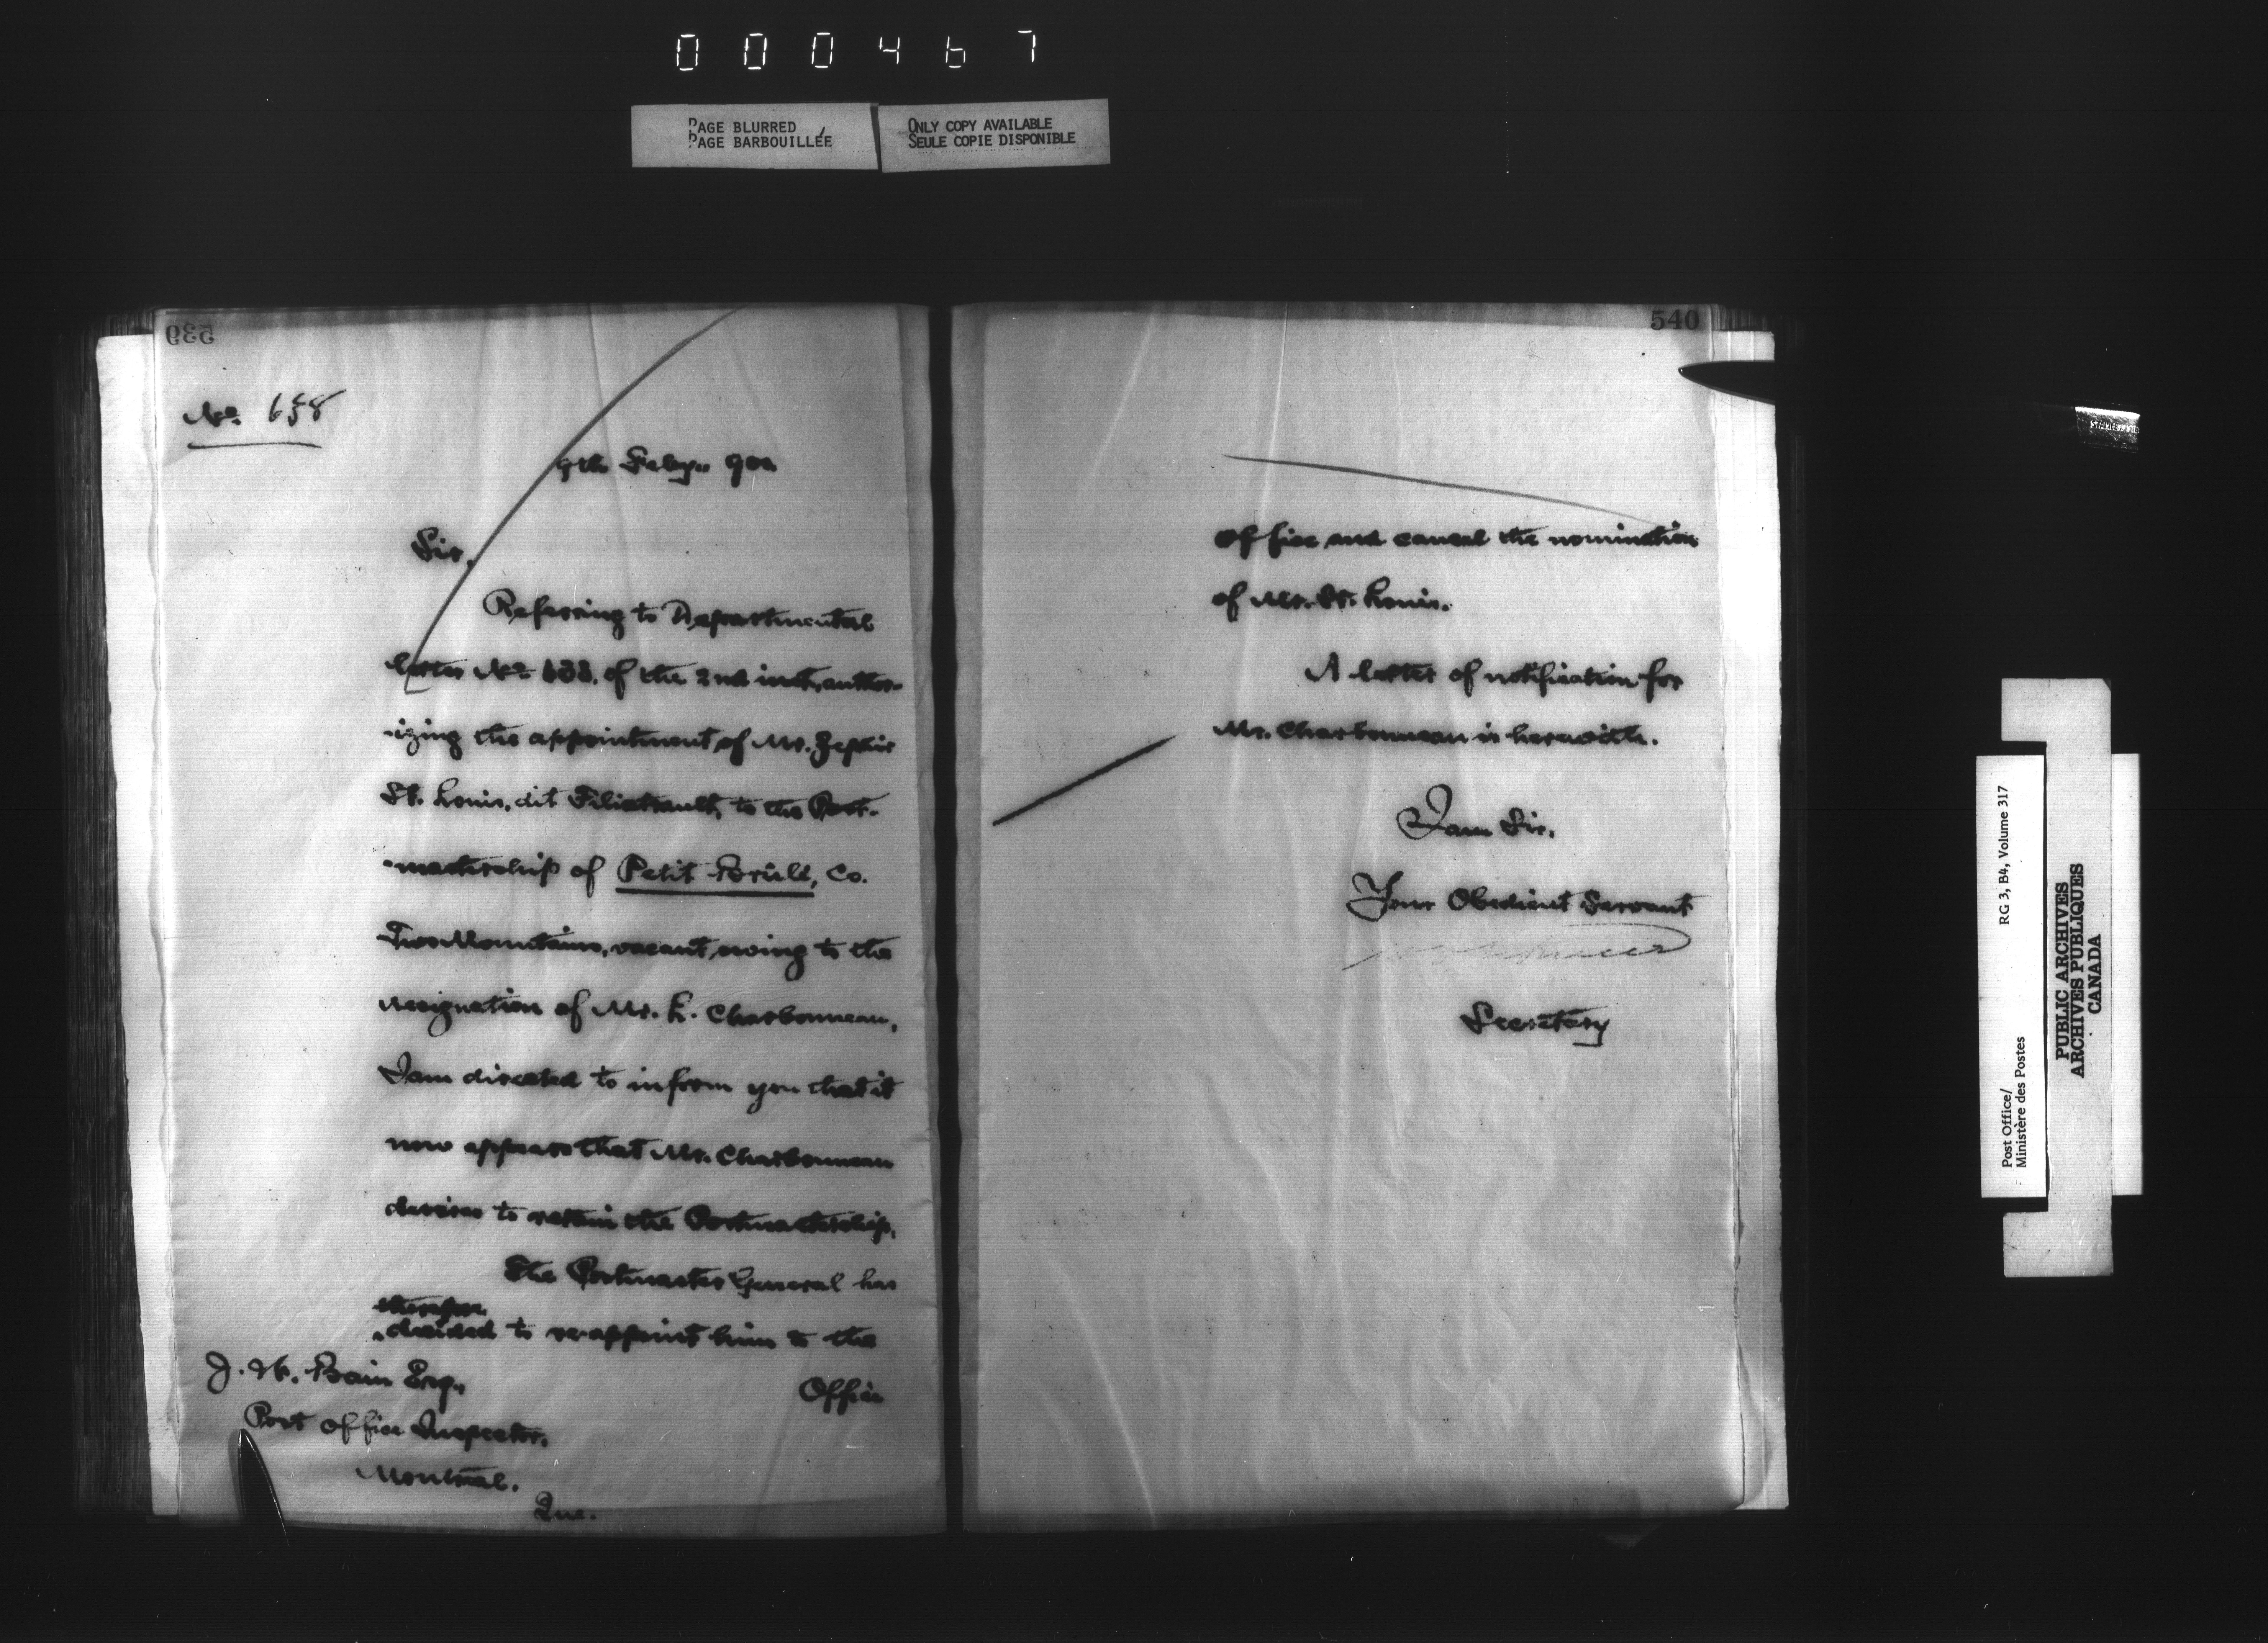 000467
PAGE BLURRED
PAGE BARBOUILLÉE
ONLY COPY AVAILABLE
SEULE COPIE DISPONIBLE
539
No. 658
9th Feby.. 900
Sir,
Referring to Departmental
letter No of the 2nd inst, author-
-izing the appointment of Mr. Zephir
St. Louis, dit Filiatrault, to the Post-
-mastership of Petit Brulé, Co.
Two Mountains, vacant, owing to the
resignation of Mr. L. Charbonneau,
I am directed to inform you that it
now appears that Mr. Charbonneau
desires to retain the Postmastership.
The Postmaster General has
therefore
decided to re-appoint him to the
Office
J. W. Bain Esq.,
Post Office Inspector,
Montreal.
Que.
540
Office and cancel the nomination
of Mr. St. Louis.
A letter of notification for
Mr. Charbonneau is herewith.
I am Sir,
Your Obedient Servant
Secretary
Post Office/
Ministère des Postes
RG 3, B4, Volume 317
PUBLIC ARCHIVES
ARCHIVES PUBLIQUES
CANADA